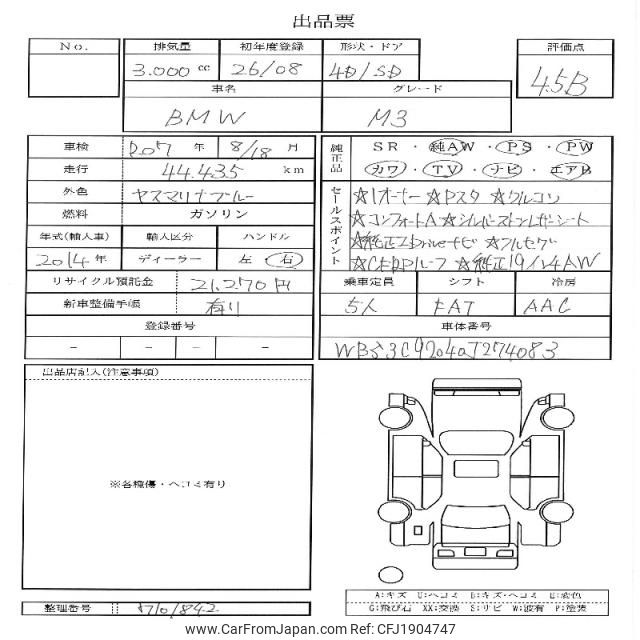 出品票
No.
排気量 初年度登録 形状・ドア 評価点
3.000 cc 26/08 4D/SD 4.5B
車名 グレード
BMW M3
車検 R07 年 8/18 月
走行 44.435 km
外色 ヤスマリナブルー
燃料 ガソリン
年式(輸入車) 輸入区分 ハンドル
2014年 ディーラー 左 右
リサイクル預託金 21,270円
新車整備手帳 有り
登録番号
- - - -
純正品 SR ・ 純AW ・ PS ・ PW
カワ ・ TV ・ ナビ ・ エアB
セールスポイント
☆1オーナー ☆Pスタ ☆クルコン
☆コンフォートA ☆シルバーストンレザーシート
☆純正iDriveナビ ☆フルセグ
☆CFRPルーフ ☆純正19インチAW
乗車定員 シフト 冷房
5人 FAT AAC
車体番号
出品店記入(注意事項)
※各種傷・ヘコミ有り
A:キズ U:ヘコミ B:キズ・ヘコミ H:変色
G:飛び石 XX:交換 S:サビ W:波有 P:塗装
整理番号 710/842
www.CarFromJapan.com - CFJ1904747